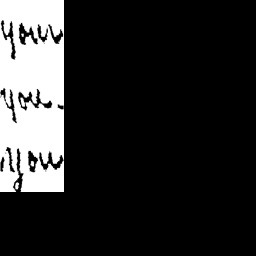 your
you.
you